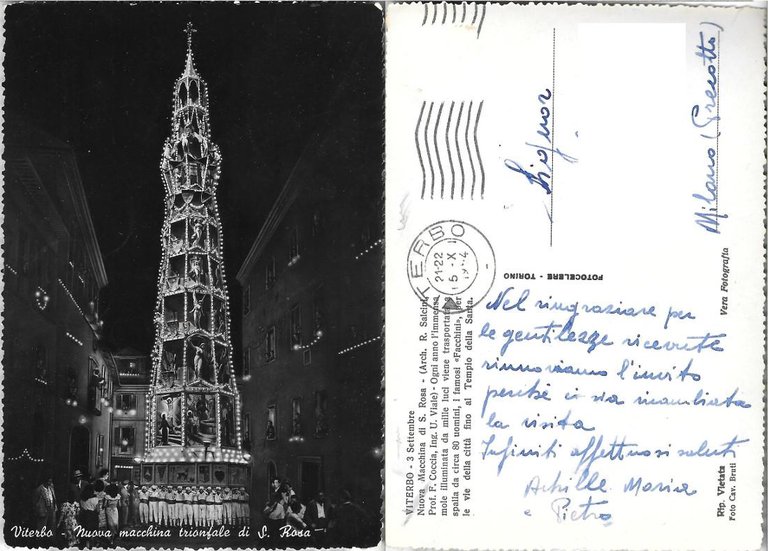 Viterbo - Nuova macchina trionfale di S. Rosa
VITERBO - 3 Settembre
Nuova Macchina di S. Rosa - (Arch. R. Salcini,
Prof. F. Coccia, Ing. U. Viale) - Ogni anno l'immensa
mole illuminata da mille luci viene trasportata a
spalla da circa 80 uomini, i famosi «Facchini», per
le vie della città fino al Tempio della Santa.
TERBO
21-22
5 - X
FOTOCELERE - TORINO
Signor
Milano (Precotto)
Vera Fotografia
Rip. Vietata
Foto Cav. Bruti
Nel ringraziare per
le gentilezze ricevute
rinnoviamo l'invito
perché ci sia ricambiata
la visita
Infiniti affettuosi saluti
Achille Maria
e Pietro